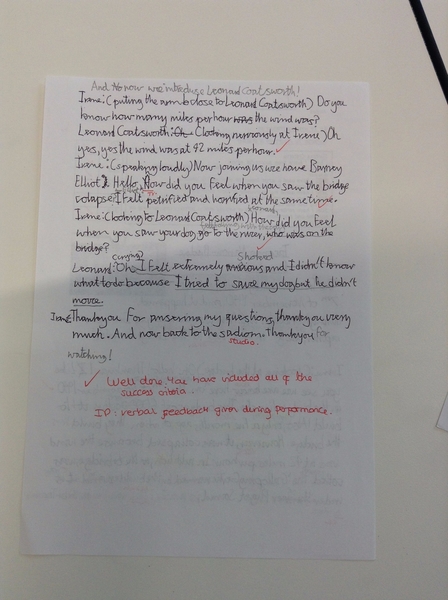 And now we introduce Leonard Coatsworth!
Irene: (putting the arm close to Leonard Coatsworth) Do you
know how many miles per hour was the wind was?
Leonard Coatsworth: Oh (looking nervously at Irene) Oh
yes, yes the wind was at 42 miles per hour.
Irene: (speaking loudly) Now joining us we have Barney
Elliot: Hello, How did you feel when you saw the bridge
colapse? I felt petrified and horrified at the same time.
Irene: (looking to Leonard Coatsworth) How did you feel
when you saw your dog go to the river, who was on the
bridge?
Leonard: Oh I felt extremely anxious and I didn't know
what to do because I tried to save my dog but he didn't
move.
Irene: Thankyou for answering my questions, thankyou very
much. And now back to the stadiom. Thankyou for
studio.
watching!
Well done. You have included all of the
success critria.
IP: verbal feedback given during performance.